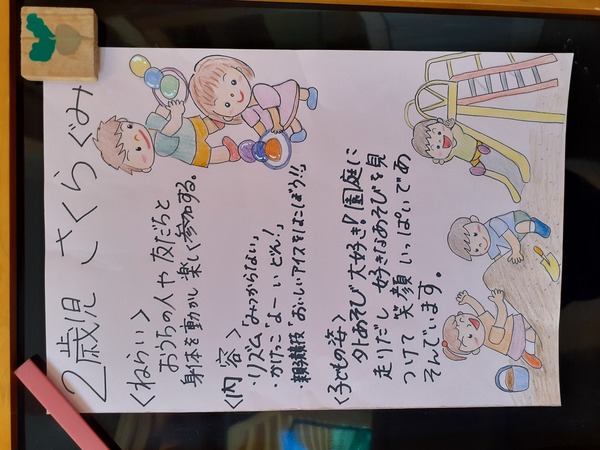 2歳児 さくらぐみ
〈ねらい〉
おうちの人や友だちと
身体を動かし楽しく参加する。
〈内容〉
・リズム「みつからない」
・かけっこ「よーいどん!」
・親子競技「おいしいアイスをはこぼう!!」
〈子どもの姿〉
外あそび大好き!園庭に
走りだし 好きなあそびを見
つけて 笑顔いっぱいであ
そんでいます。